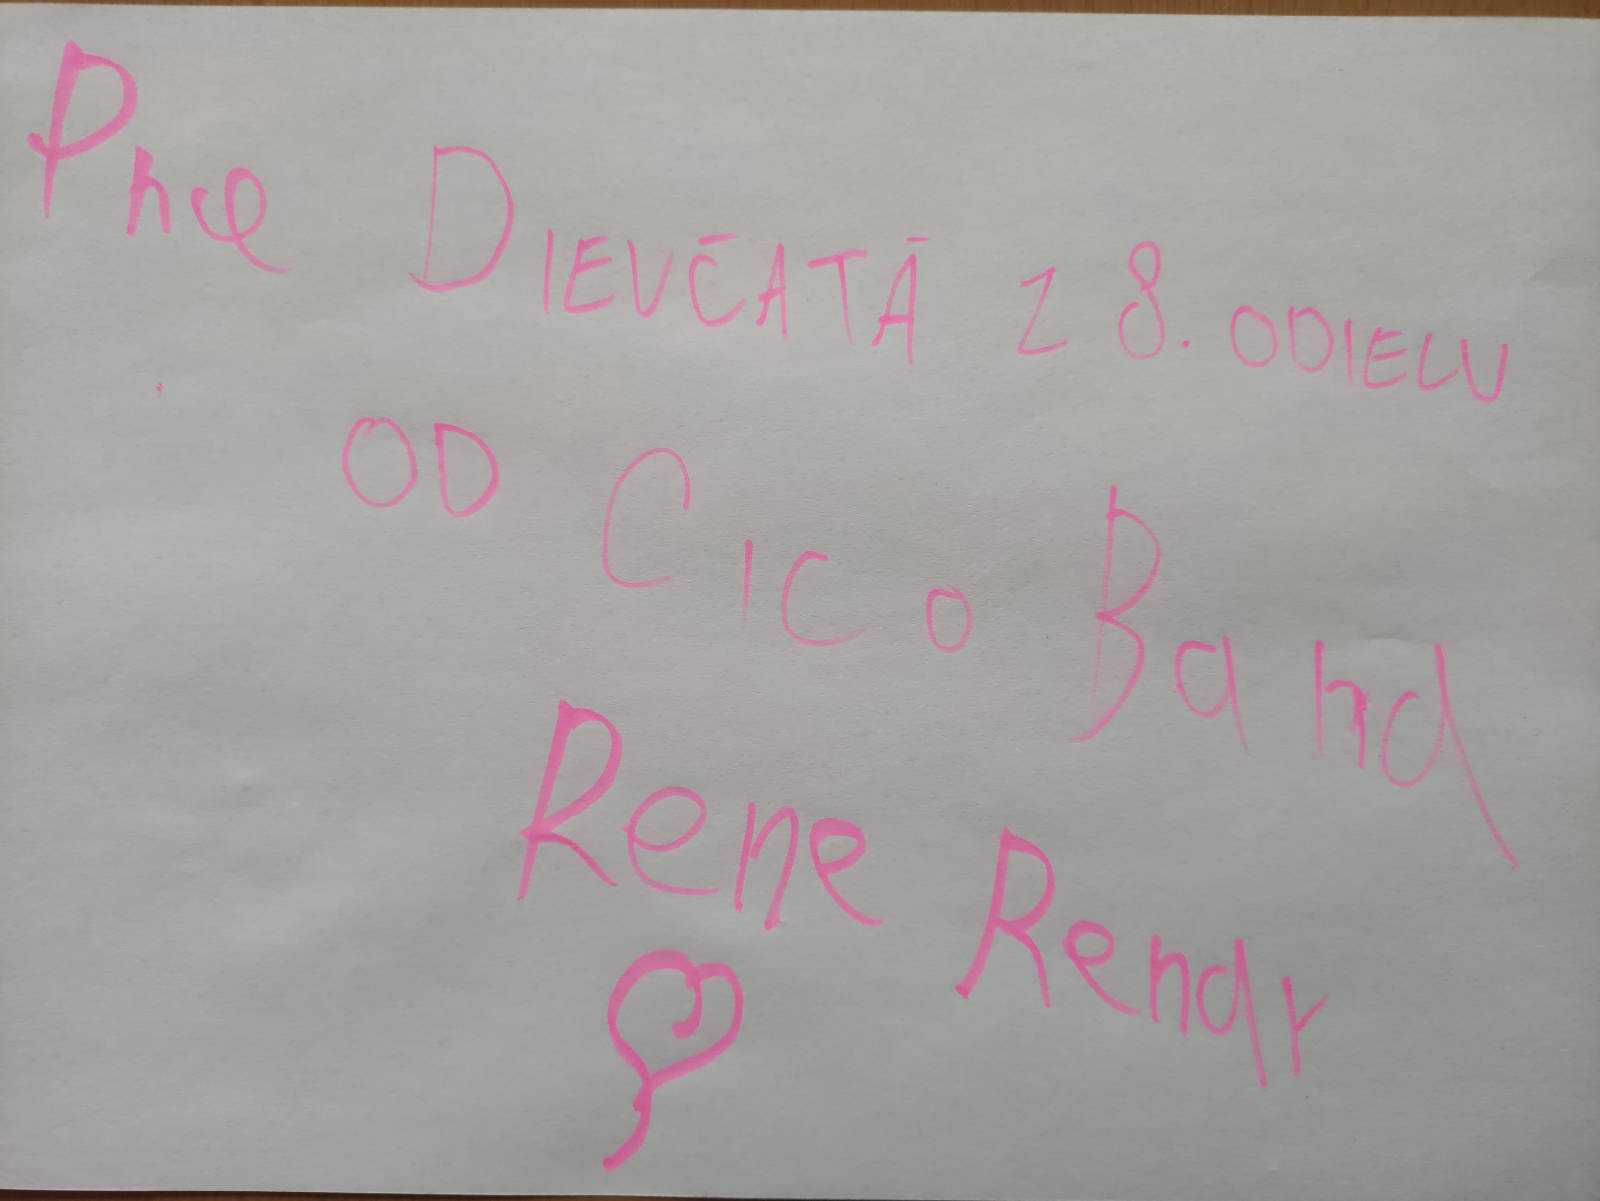 Pre DIEVČATÁ Z 8. ODIELU
OD CICO Band
Rene Rendy